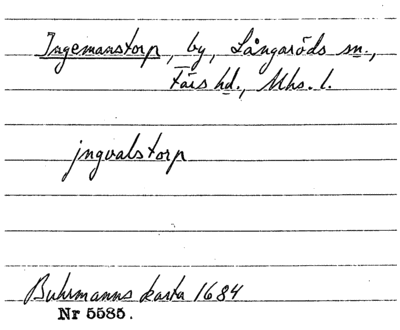 Ingemanstorp, by, Långaröds sn.,
Färs hd., Mhs. l.
jngvalstorp
Buhrmanns karta 1684
Nr 5585.